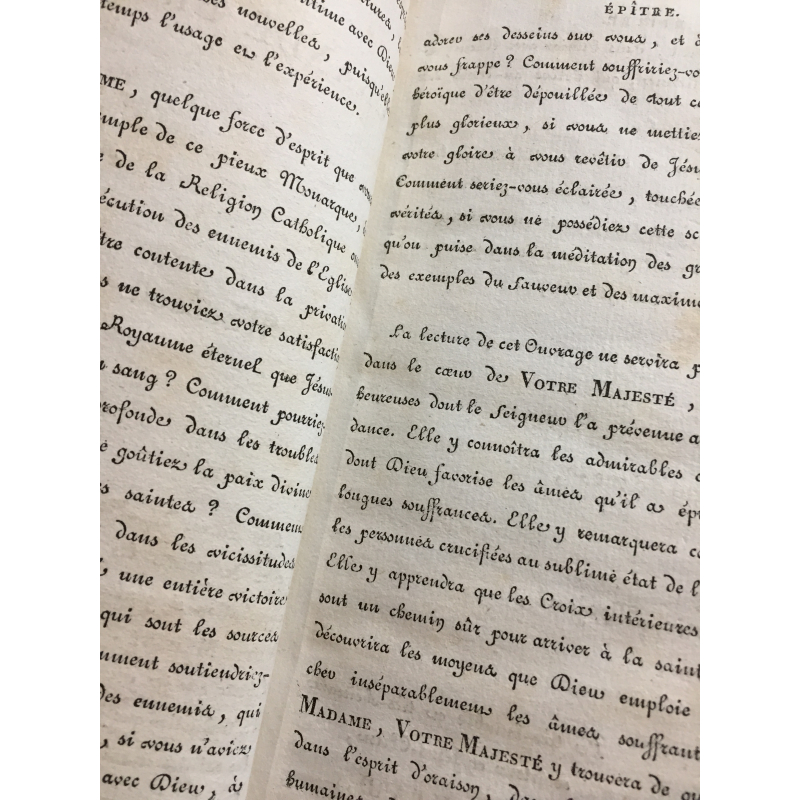 nouvelles, puisqu'el
temps l'usage en l'expérience.
ME, quelque force d'esprit que
mple de ce pieux Monarque,
de la Religion Catholique
écution des ennemis de l'Eglise
tre contente dans la privatio
s ne trouviez votre satisfactio
Royaume éternel que Jésus
sang ? Comment pourriez-
rofonde dans les troubles
goûtiez la paix divine
s saintes ? Comment
dans les vicissitudes
, une entière victoire
qui sont les sources
mment soutiendriez-
des ennemis, qui
, si vous n'aviez
avec Dieu, à
ÉPÎTRE.
adorer ses desseins sur vous, et
vous frappe ? Comment souffririez-vo
héroïque d'être dépouillée de tout ce
plus glorieux, si vous ne mettiez
votre gloire à vous revêtir de Jésu
Comment seriez-vous éclairée, touchée
vérités, si vous ne possédiez cette sc
qu'on puise dans la méditation des gr
des exemples du Sauveur et des maxime
La lecture de cet Ouvrage ne servira p
dans le cœur de VOTRE MAJESTÉ,
heureuses dont le Seigneur l'a prévenue a
dance. Elle y connoîtra les admirables
dont Dieu favorise les âmes qu'il a ép
longues souffrances. Elle y remarquera co
les personnes crucifiées au sublime état de l'
Elle y apprendra que les Croix intérieures
sont un chemin sûr pour arriver à la saint
découvrira les moyens que Dieu emploie
cher inséparablement les âmes souffrant
MADAME, VOTRE MAJESTÉ y trouvera de qu
dans l'esprit d'oraison, da
humaines